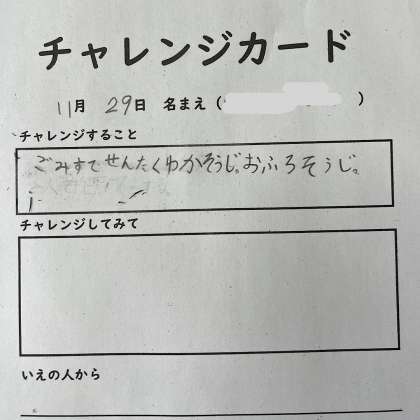 チャレンジカード
11月 29日 名まえ( )
チャレンジすること
ごみすてせんたくゆかそうじ。おふろそうじ。
チャレンジしてみて
いえの人から